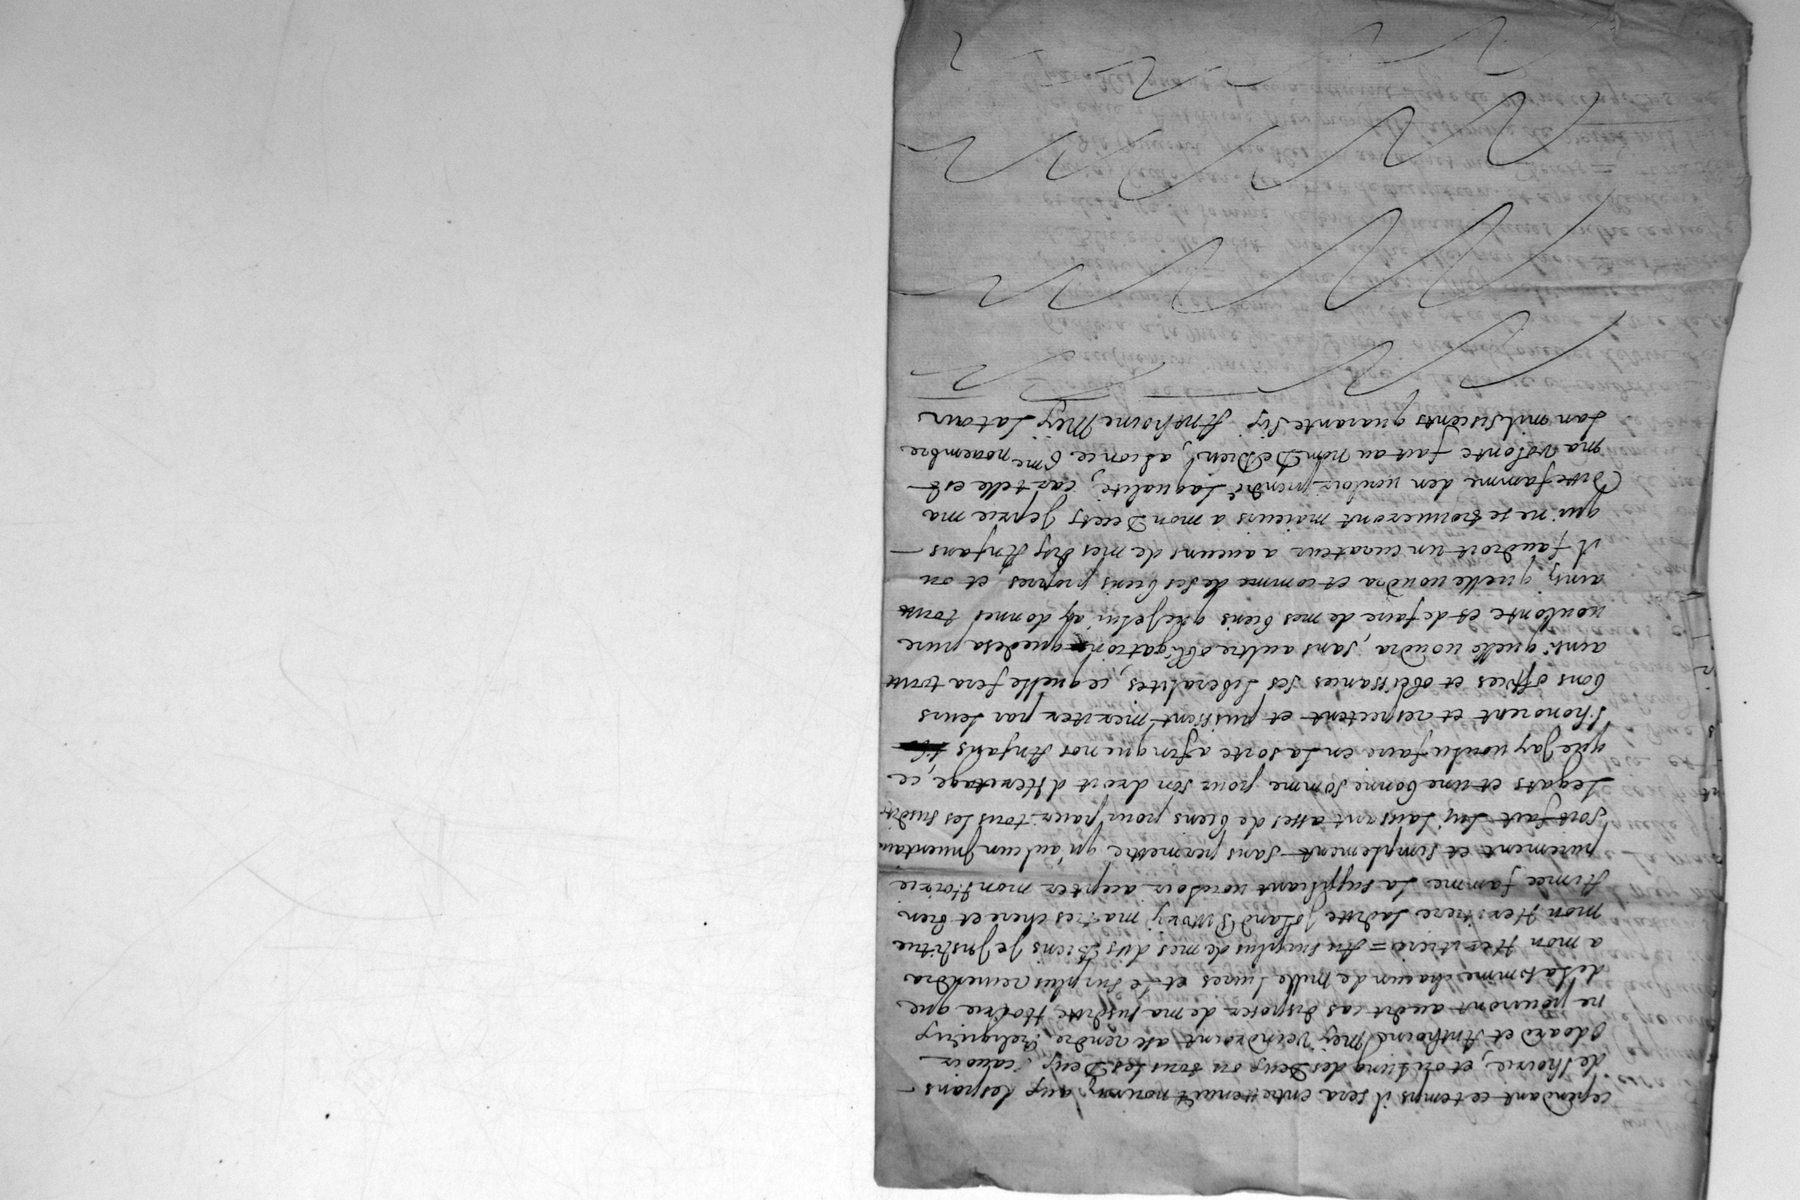 cependant ce temps il sera entretenu et nourry aux despans
de lhoirie, et ou lung des Deux ou tous les Deux, sçavoir
Odoard et Anthoine Mey viendroint a se rendre religieux
ne pourront audit cas disposer de ma susditte Hoirie que
de la somme chacun de mille livres et le surplus reviendra
a mon Heritiere = Au surplus de mes dits Biens Je Institue
mon Heritiere laditte ma tres chere et bien
Aimee famme la suppliant vouloir acepter mon Hoirie
purement et simplement sans permettre qu'aulcun Inventaire
soit fait luy laissant asses de biens pour paier tous les susdits
Legats et une bonne somme pour son droit d'Heritage, ce
que Jay voulu faire en la sorte afin que nos Anfans
l'honorent et respectent et puissent meriter par leurs
bons offices et obeissances ses liberalites, ce quelle fera tout
ainsi quelle voudra, sans aultre obligation que de sa pure
voulonte et de faire de mes biens que Je luy ay donnes tout
ainsy quelle voudra et comme de ses biens propres, et ou
Il faudroit un curateur a aucuns de mes dits Anfans
qui ne se trouveront maieurs a mon Deces Je prie ma
Ditte famme den vouloir prendre la qualite, car telle est
ma volonte fait au nom De Dieu, a Lion ce 6me novembre
Lan mil six cents quarante six Anthoine Mey Latour